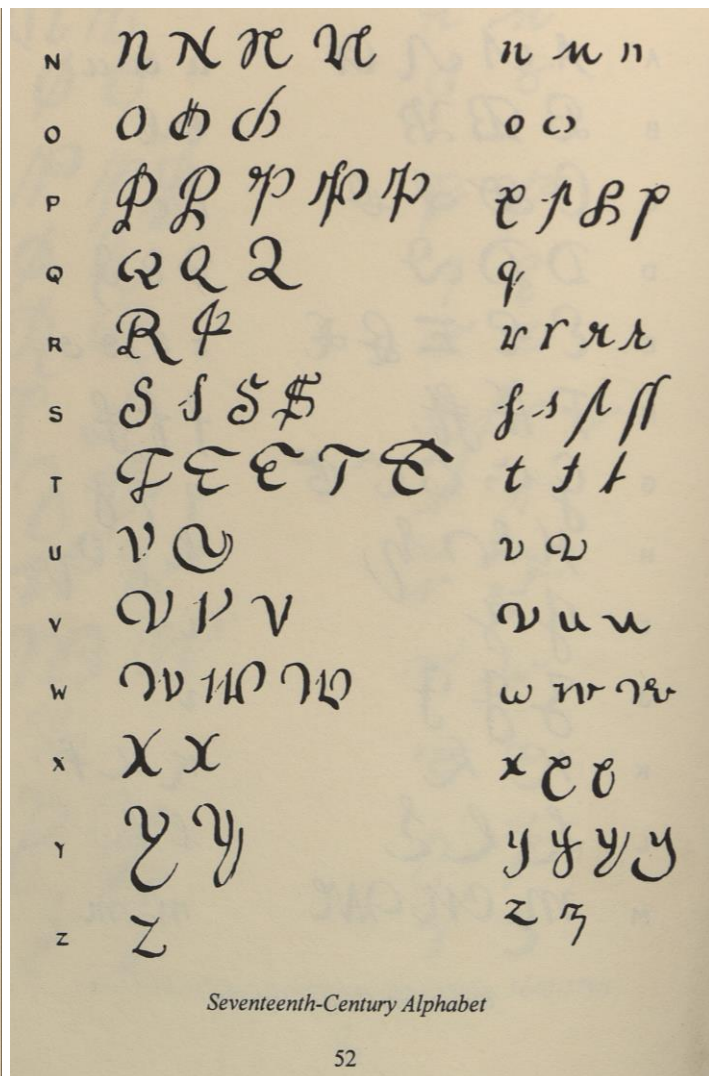 N n N N N n n n
O O O O o o
P P P P P P p p p p
Q Q Q Q q
R R R r r r r
S S S S S s s s ss
T T T T T T t t t
U U U u u
V V V V v u u
W W W W w w w
X X X x x x
Y Y Y y y y y
Z Z z z
Seventeenth-Century Alphabet
52